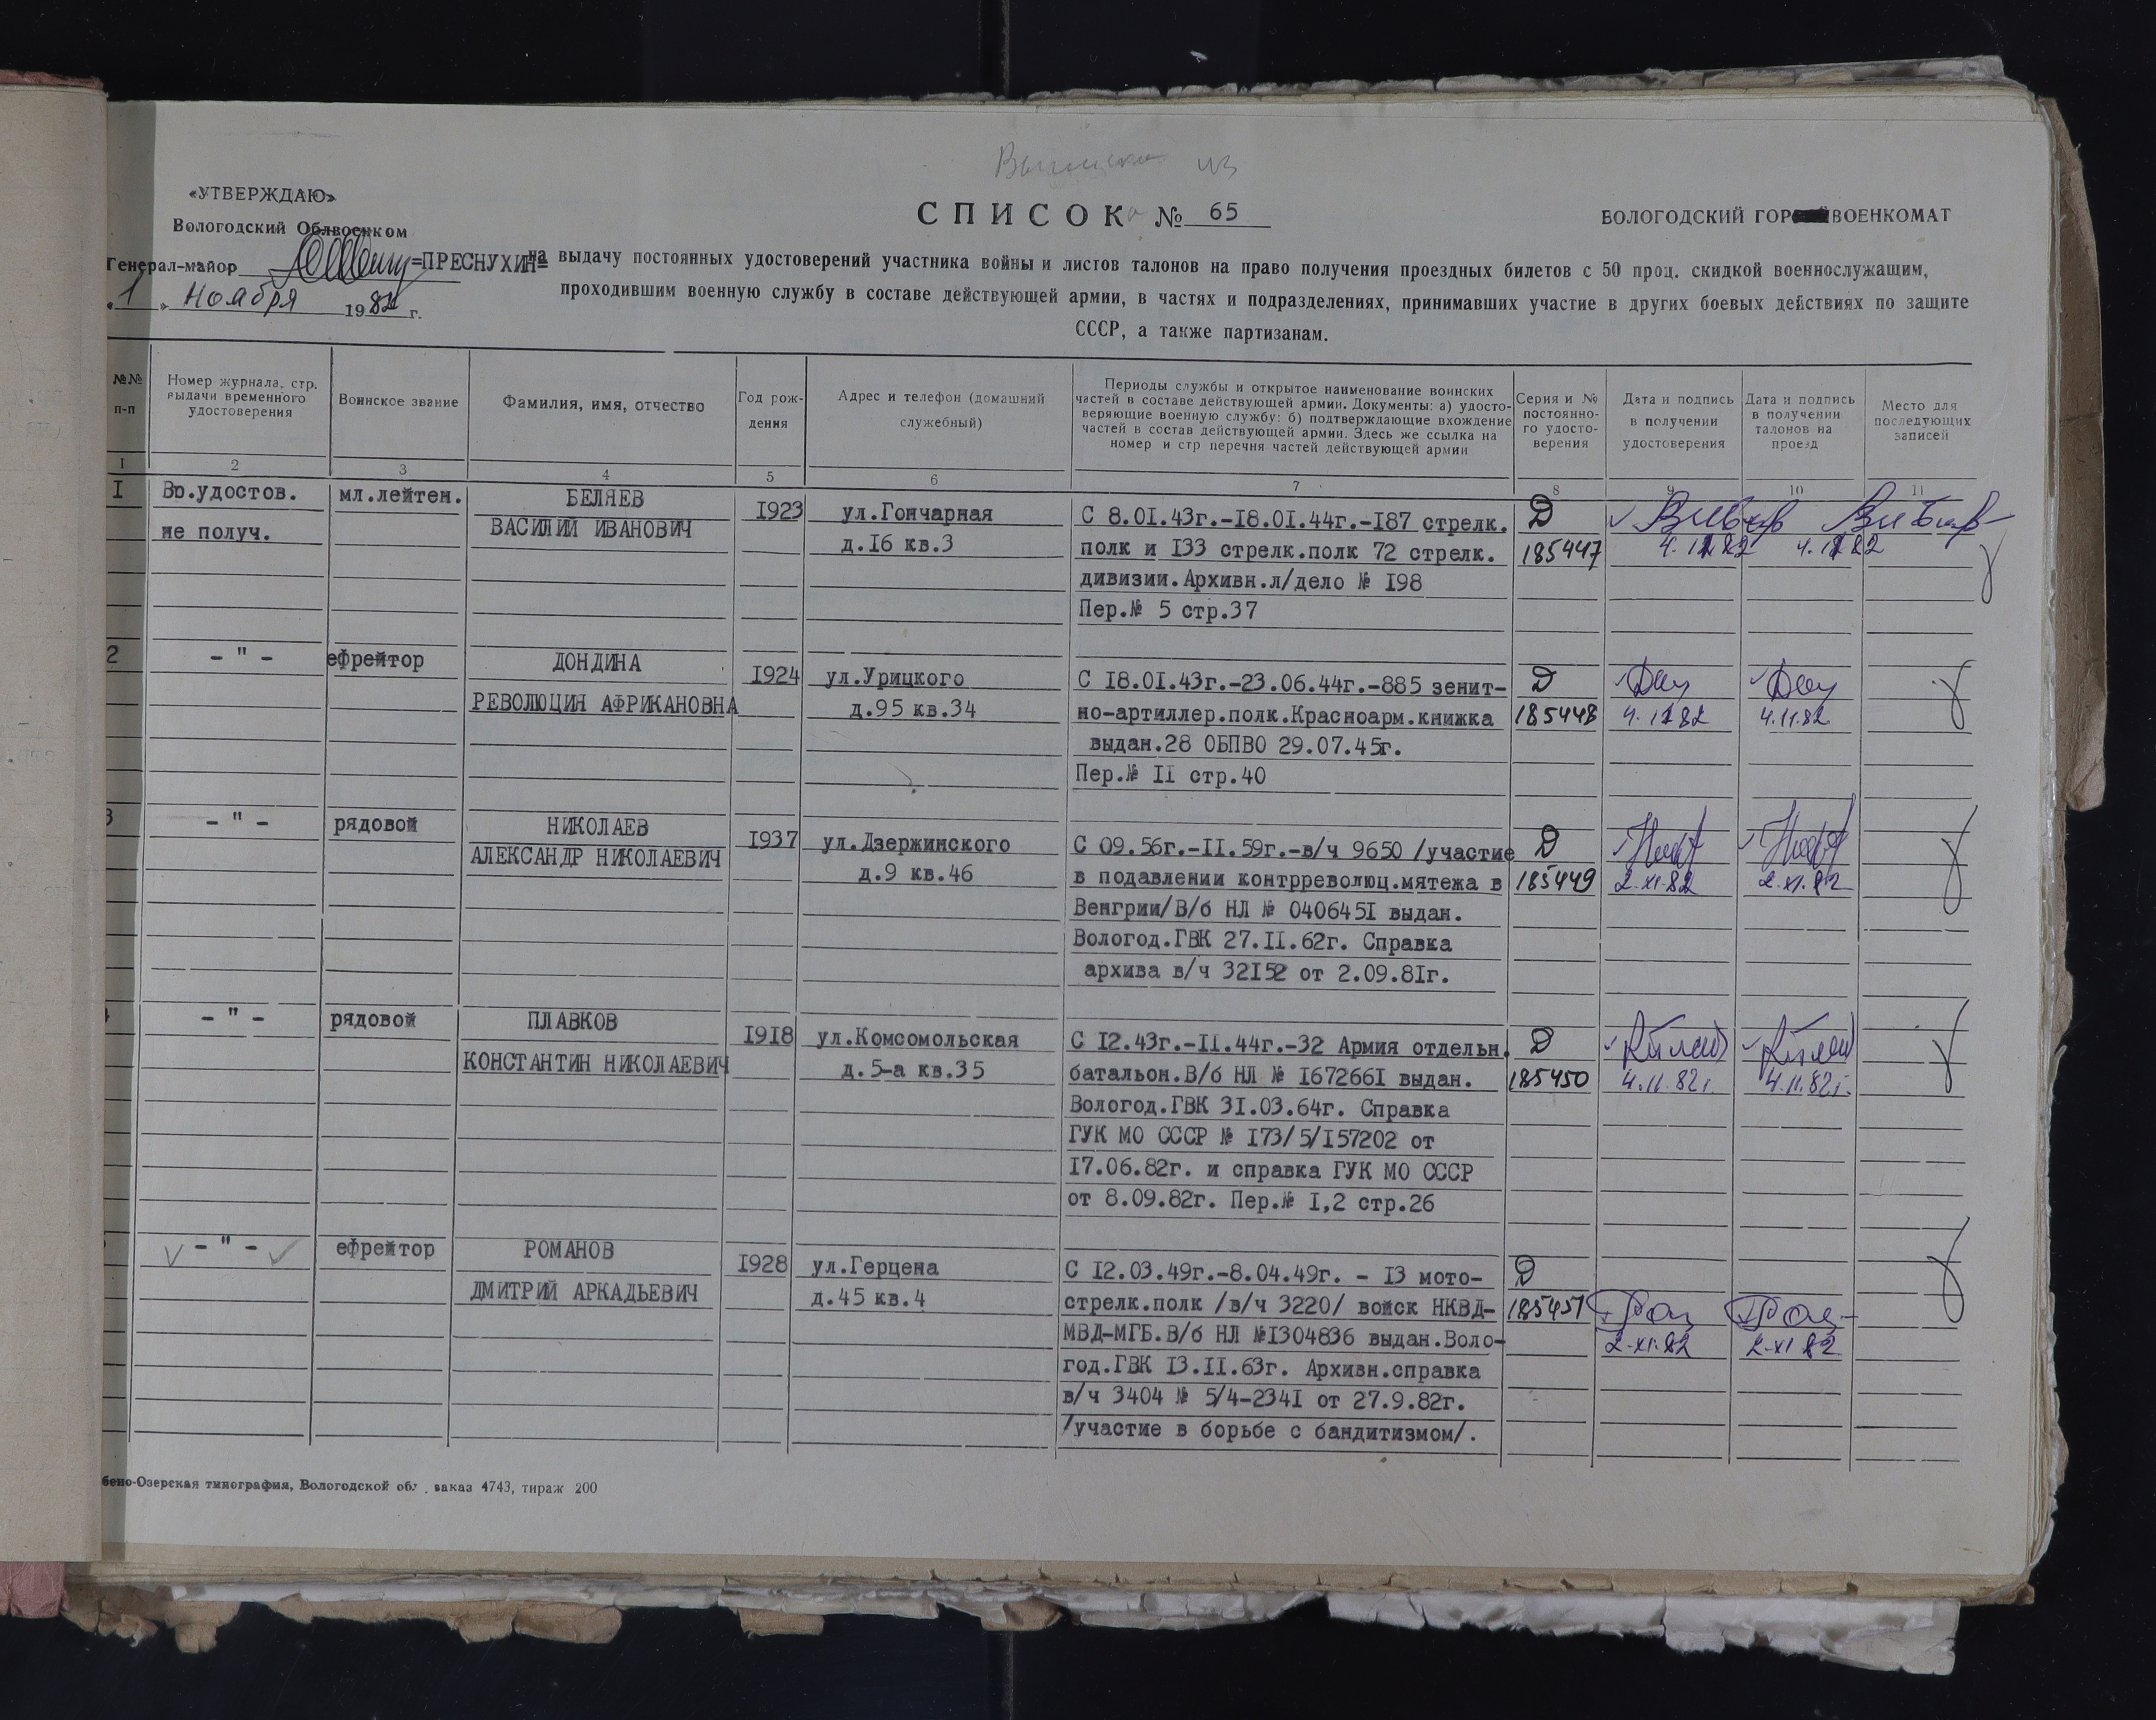 Выписка из
«УТВЕРЖДАЮ»
Вологодский Облвоенком
Генерал-майор =ПРЕСНУХИН=
«1» Ноября 1982 г.
СПИСОК № 65
ВОЛОГОДСКИЙ ГОР ВОЕНКОМАТ
на выдачу постоянных удостоверений участника войны и листов талонов на право получения проездных билетов с 50 проц. скидкой военнослужащим,
проходившим военную службу в составе действующей армии, в частях и подразделениях, принимавших участие в других боевых действиях по защите
СССР, а также партизанам.
№№ п-п
Номер журнала, стр. выдачи временного удостоверения
Воинское звание
Фамилия, имя, отчество
Год рож-дения
Адрес и телефон (домашний служебный)
Периоды службы и открытое наименование воинских
частей в составе действующей армии. Документы: а) удосто-
веряющие военную службу: б) подтверждающие вхождение
частей в состав действующей армии. Здесь же ссылка на
номер и стр перечня частей действующей армии
Серия и № постоянно-го удосто-верения
Дата и подпись в получении удостоверения
Дата и подпись в получении талонов на проезд
Место для последующих записей
I 2 3 4 5 6 7 8 9 10 11
I Вр.удостов. мл.лейтен. БЕЛЯЕВ
не получ. ВАСИЛИЙ ИВАНОВИЧ I923 ул.Гончарная С 8.0I.43г.-I8.0I.44г.-I87 стрелк. Д
д.I6 кв.3 полк и I33 стрелк.полк 72 стрелк. 185447 4.11.82 4.11.82
дивизии.Архивн.л/дело № I98
Пер.№ 5 стр.37
2 - " - ефрейтор ДОНДИНА
I924 ул.Урицкого С I8.0I.43г.-23.06.44г.-885 зенит- Д
РЕВОЛЮЦИЯ АФРИКАНОВНА д.95 кв.34 но-артиллер.полк.Красноарм.книжка 185448 4.11.82 4.11.82
выдан.28 ОБПВО 29.07.45г.
Пер.№ II стр.40
3 - " - рядовой НИКОЛАЕВ
АЛЕКСАНДР НИКОЛАЕВИЧ I937 ул.Дзержинского С 09.56г.-II.59г.-в/ч 9650 /участие Д
д.9 кв.46 в подавлении контрреволюц.мятежа в 185449 2.XI.82 2.XI.82
Венгрии/В/б НЛ № 040645I выдан.
Вологод.ГВК 27.II.62г. Справка
архива в/ч 32I52 от 2.09.8Iг.
4 - " - рядовой ПЛАВКОВ
I9I8 ул.Комсомольская С I2.43г.-II.44г.-32 Армия отдельн. Д
КОНСТАНТИН НИКОЛАЕВИЧ д.5-а кв.35 батальон.В/б НЛ № I67266I выдан. 185450 4.11.82г. 4.11.82г.
Вологод.ГВК 3I.03.64г. Справка
ГУК МО СССР № I73/5/I57202 от
I7.06.82г. и справка ГУК МО СССР
от 8.09.82г. Пер.№ I,2 стр.26
- " - ефрейтор РОМАНОВ
I928 ул.Герцена С I2.03.49г.-8.04.49г. - I3 мото- Д
ДМИТРИЙ АРКАДЬЕВИЧ д.45 кв.4 стрелк.полк /в/ч 3220/ войск НКВД- 185451
МВД-МГБ.В/б НЛ №I304836 выдан.Воло- 2.XI.82 2.XI.82
год.ГВК I3.II.63г. Архивн.справка
в/ч 3404 № 5/4-234I от 27.9.82г.
/участие в борьбе с бандитизмом/.
бено-Озерская типография, Вологодской обл. заказ 4743, тираж 200